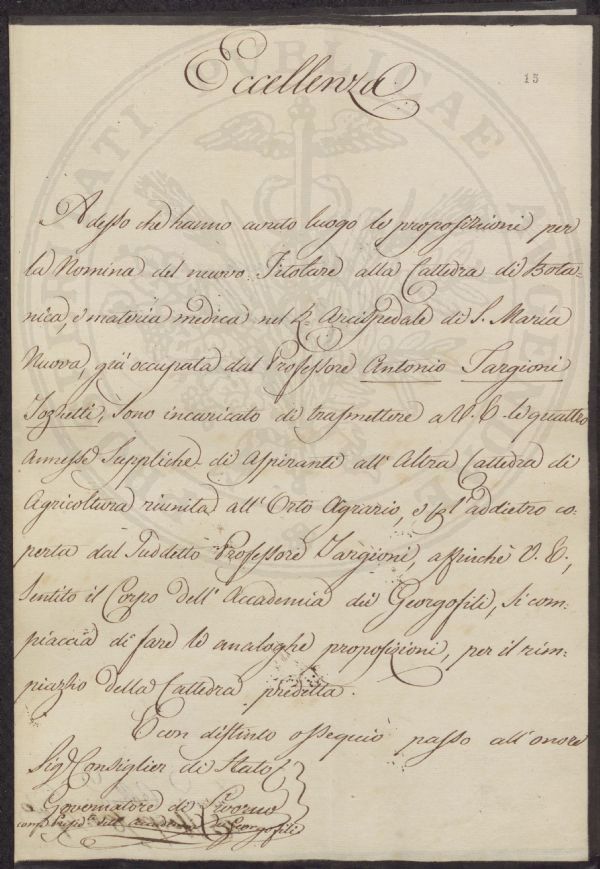 13
Eccellenza
Adesso che hanno avuto luogo le proposizioni per
la Nomina del nuovo Titolare alla Cattedra di Bota-
nica, e materia medica nel R. Arcispedale di S. Maria
Nuova, già occupata dal Professore Antonio Targioni
Tozzetti, sono incaricato di trasmettere a V. E. le quattro
annesse Suppliche di Aspiranti all' Altra Cattedra di
Agricoltura riunita all' Orto Agrario, e p l'addietro co-
perta dal Suddetto Professore Targioni, affinchè V. E.,
Sentito il Corpo dell' Accademia dei Georgofili, si com-
piaccia di fare le analoghe proposizioni, per il rim-
piazzo della Cattedra predetta.
E con distinto ossequio passo all' onore
Sig Consiglier di Stato
Governatore di Livorno
dell' Accademia dei Georgofili